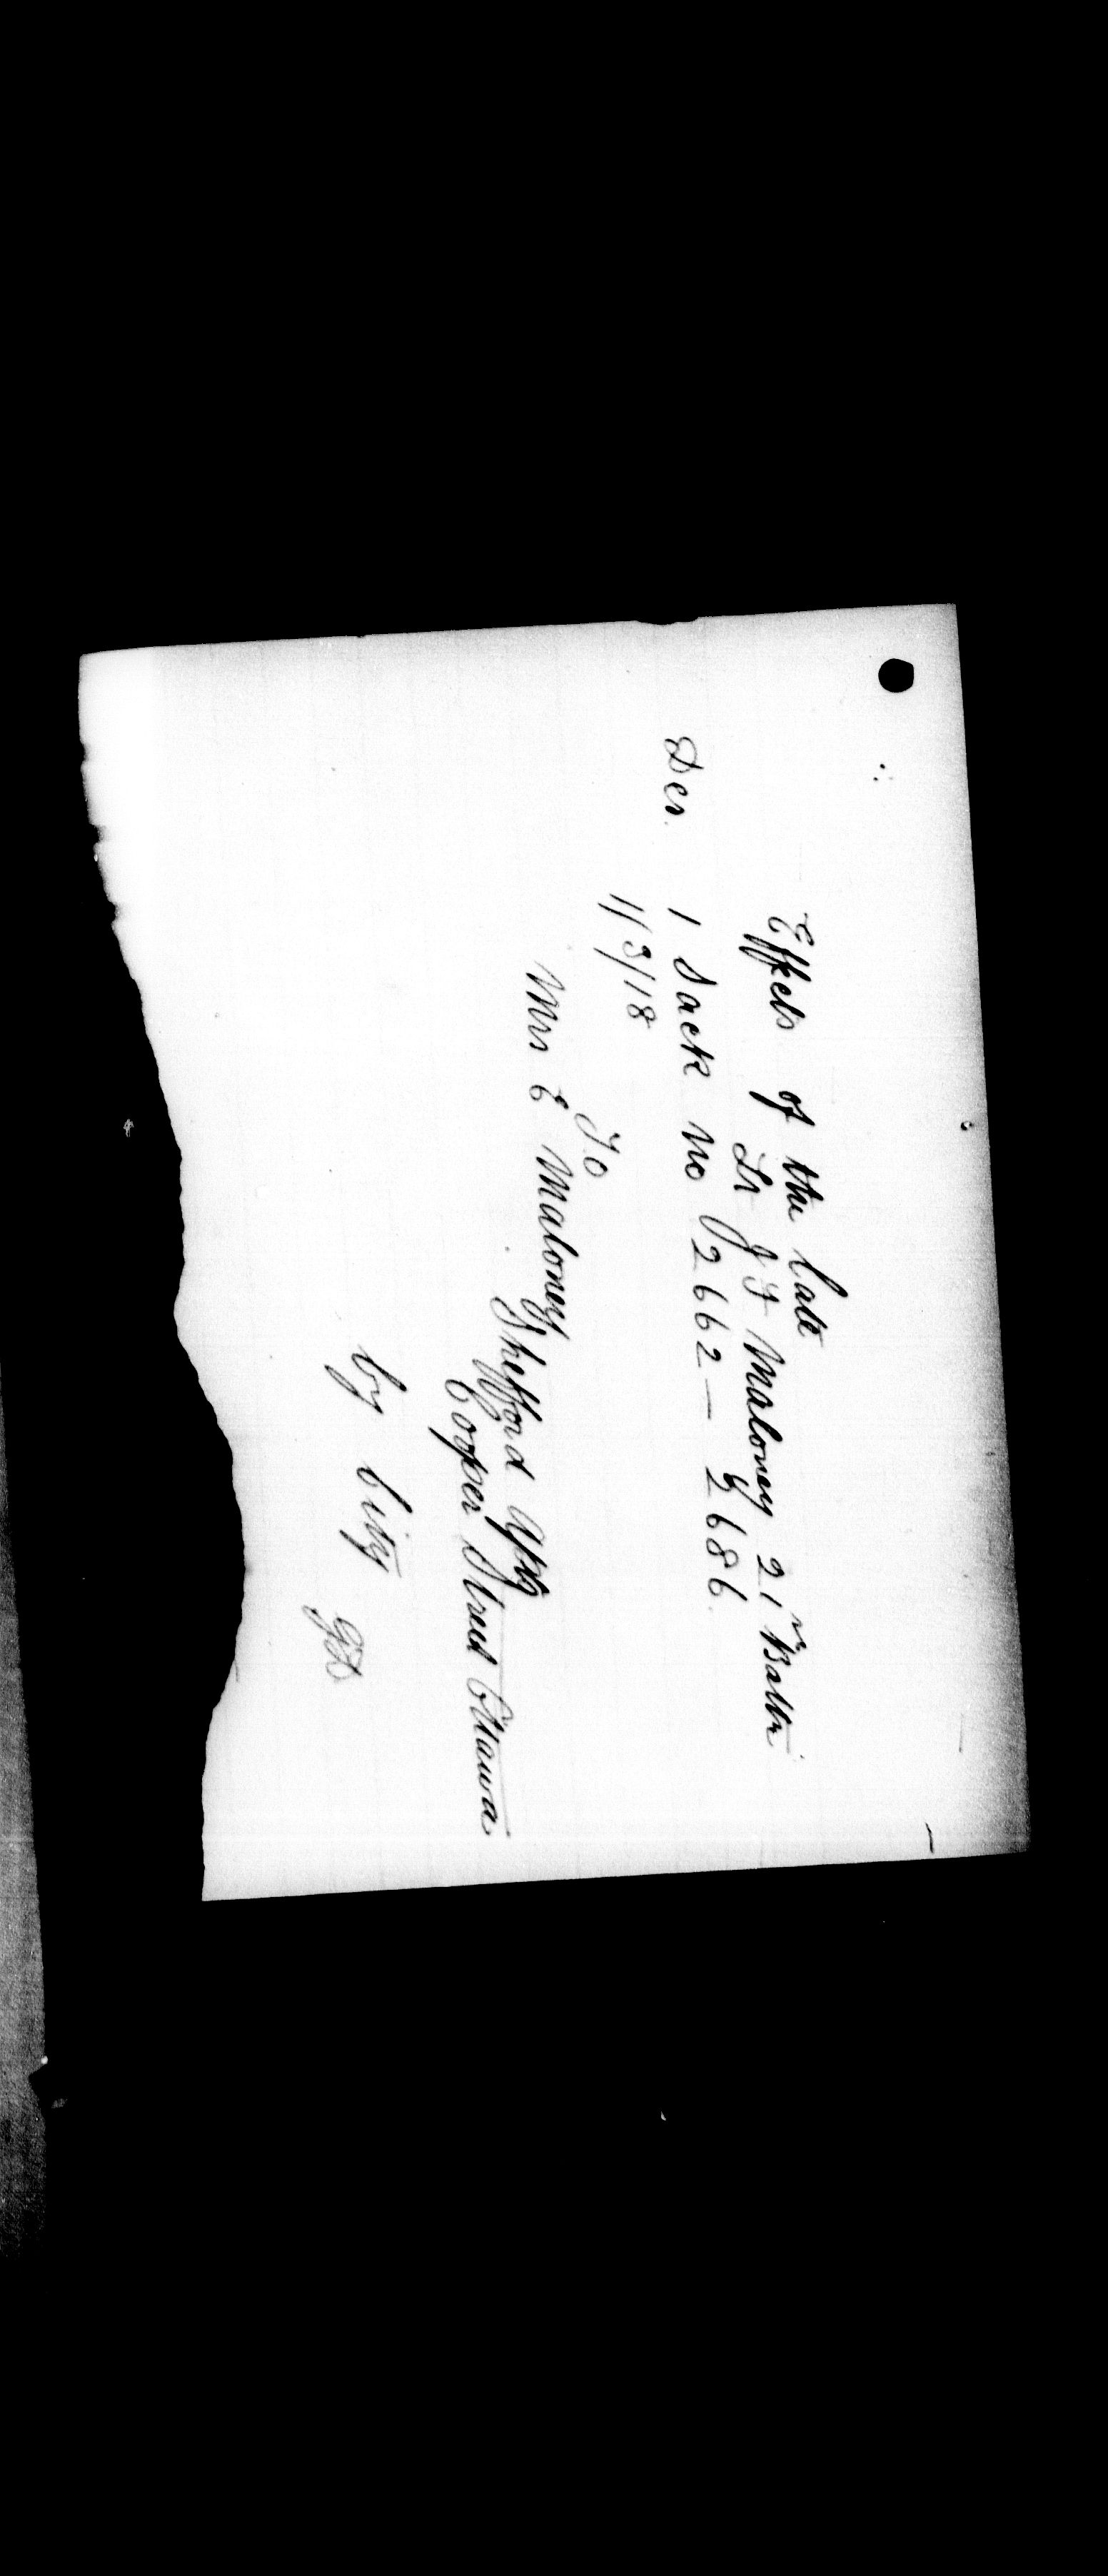 Effects of the late
Lt J F Maloney 21 Battn
Des. 1 Sack No 2662 — 2686.
11/3/18
To
Mrs E Maloney
Shefford Apts
Cooper Street Ottawa
by City